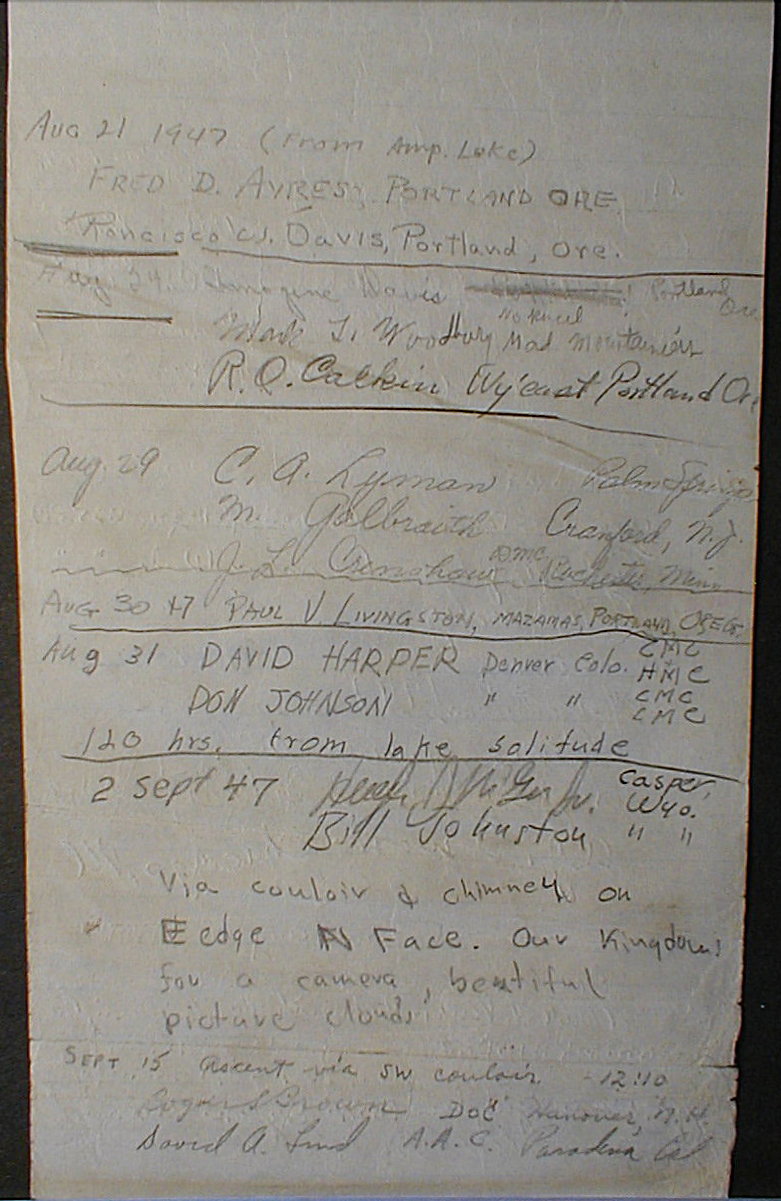 Aug 21 1947 (From Amp. Lake)
FRED D. AYRES, PORTLAND ORE.
W. Davis, Portland, Ore.
Aug. 24. Imogene Davis Portland Ore
No Pencil
L. Woodbury Mad Mountaineer
R.O. Calkin Wy'east Portland Or
Aug. 29 C. A. Lyman Palm Springs
M. Galbraith Cranford, N.J.
J. L. Crenshaw DMC Rochester, Minn
AUG 30 47 PAUL V LIVINGSTON, MAZAMAS, PORTLAND, OREG.
Aug 31 DAVID HARPER Denver Colo. CMC
HMC
DON JOHNSON " " CMC
CMC
120 hrs. from lake solitude
2 Sept 47 Jr. Casper, Wyo.
Bill Johnston " "
Via couloir & chimney on
E edge N Face. Our Kingdoms
for a camera, beutiful
picture clouds!
SEPT 15 ascent via SW couloir - 12:10
Brown DOC Hanover, N.H.
David A. A.A.C. Cal